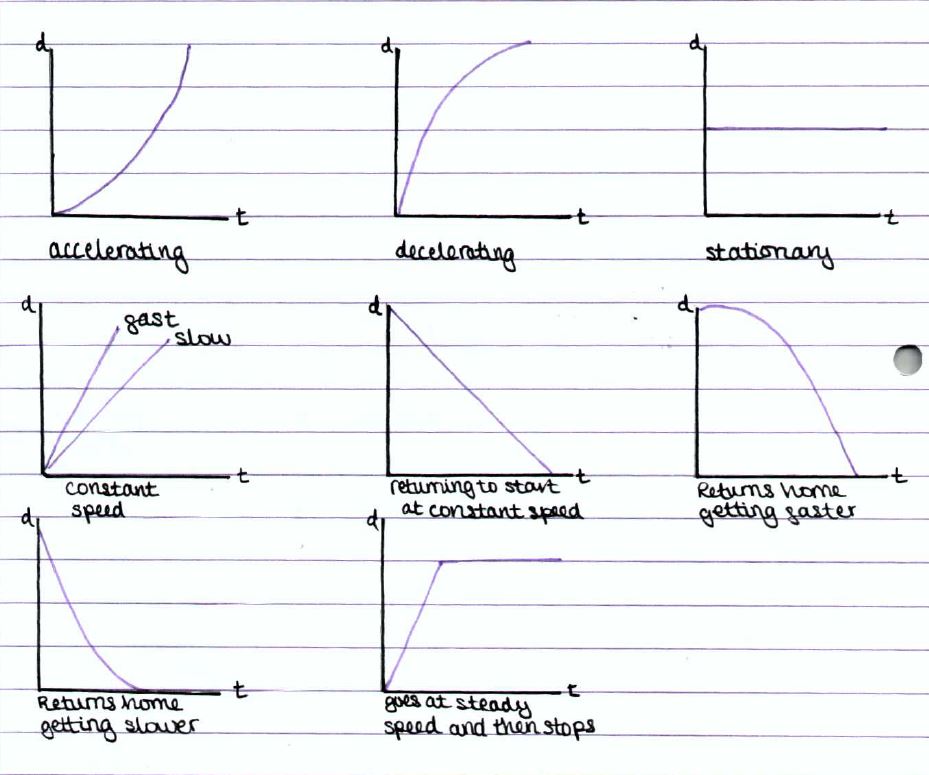 d
d
d
t
t
t
accelerating
decelerating
stationary
d
fast
slow
d
d
t
t
t
constant
speed
returning to start
at constant speed
Returns home
getting faster
d
d
t
t
Returns home
getting slower
goes at steady
speed and then stops